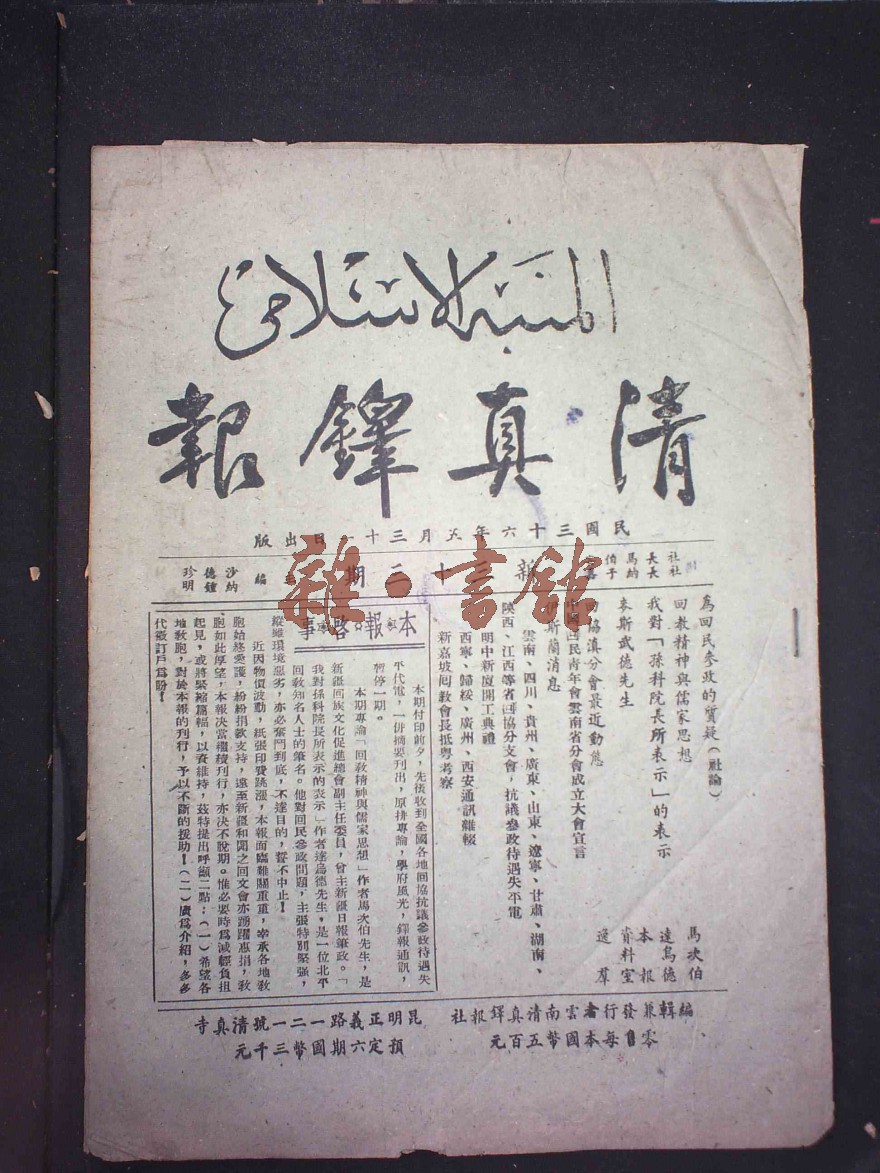 المنبه الاسلامي
清真鐸報
民國三十六年五月三十一日出版
社長 馬伯
社長 納子嘉
新三十二期
主編
沙德珍
納鍾明
為回民參政的質疑(社論)
回教精神與儒家思想 馬次伯
我對「孫科院長所表示」的表示 達烏德
麥斯武德先生 本報資料室
回協滇分會最近動態 逸羣
中國回民青年會雲南省分會成立大會宣言
伊斯蘭消息
雲南、四川、貴州、廣東、山東、遼寧、甘肅、湖南、
陝西、江西等省回協分支會,抗議參政待遇失平電
明中新廈開工典禮
西寧、歸綏、廣州、西安通訊雜輟
新嘉坡回教會長抵粵考察
本報啓事
本期付印前夕,先後收到全國各地回協抗議參政待遇失
平代電,一併摘要刊出,原排專論,學府風光,鐸報通訊,
暫停一期。
本期專論「回教精神與儒家思想」作者馬次伯先生,是
新疆回族文化促進總會副主任委員,曾主新疆日報筆政。「
我對孫科院長所表示的表示」作者達烏德先生,是一位北平
回教知名人士的筆名。他對回民參政問題,主張特別緊強,
縱雖環境惡劣,亦必奮鬥到底,不達目的,誓不中止!
近因物價波動,紙張印費跳漲,本報面臨難關重重,幸承各地教
胞始終愛護,紛紛捐款支持,遠至新疆和闐之回文會亦踴躍惠捐,教
胞如此厚望,本報決當繼續刊行,亦決不脫期。惟必要時為減輕負担
起見,或將緊縮篇幅,以資維持,茲特提出呼籲二點:(一)希望各
地教胞,對於本報的刊行,予以不斷的援助!(二)廣為介紹,多多
代徵訂戶為盼!
編輯兼發行者雲南清真鐸報社
昆明正義路一二一號清真寺
零售每本國幣五百元
預定六期國幣三千元
雜·書館